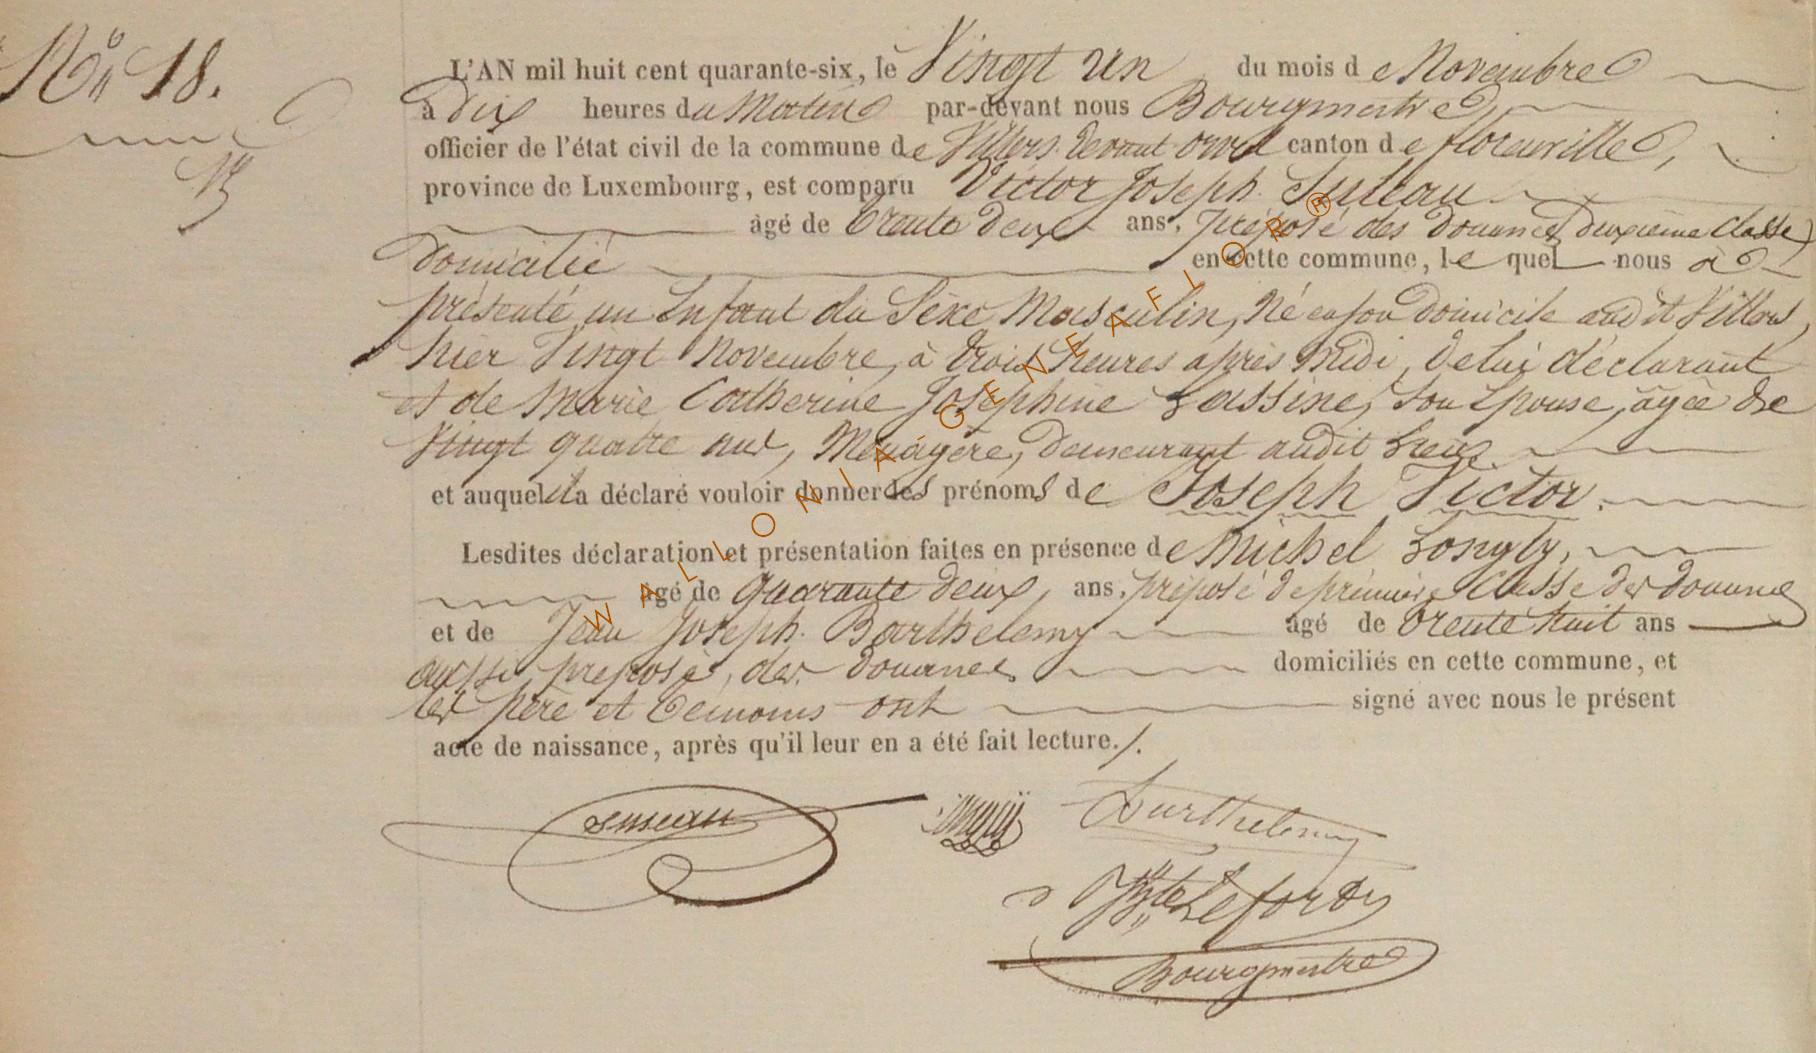 No 18.
L'AN mil huit cent quarante-six, le Vingt un du mois de Novembre
à dix heures du Matin par-devant nous Bourgmestre,
officier de l'état civil de la commune de Villers devant orval canton de florenville,
province de Luxembourg, est comparu Victor Joseph
âgé de trente deux ans, préposé des Douanes, deuxième Classe,
domicilié en cette commune, lequel nous a
présenté un Enfant du Sexe Masculin, Né en son Domicile audit Villers,
hier Vingt Novembre, à trois heures après Midi, de lui déclarant
et de Marie Catherine Josephine Lassine, son Epouse, agée de
Vingt quatre ans, Ménagère, demeurant audit Lieu
et auquel il a déclaré vouloir donner les prénoms de Joseph Victor.
Lesdites déclaration et présentation faites en présence de Michel
âgé de quarante deux ans, préposé de prémière Classe des Douanes
et de Jean Joseph Barthelemy âgé de trente huit ans
aussi préposé, des Douanes domiciliés en cette commune, et
les père et témoins ont signé avec nous le présent
acte de naissance, après qu'il leur en a été fait lecture./.
Barthelemy
Bourgmestre
WALLONIA GENEAFIOR®